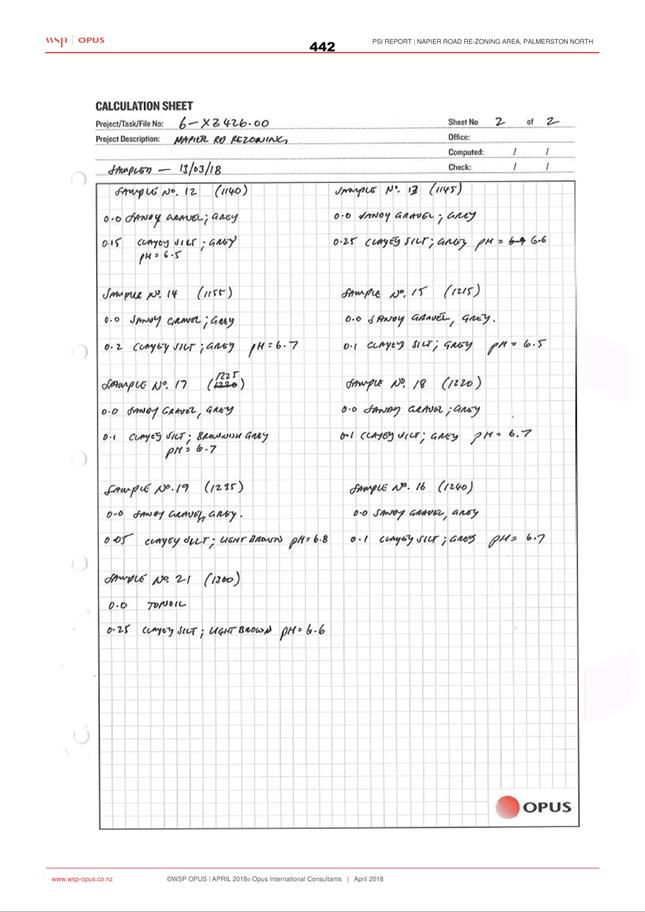 wsp | OPUS
442
PSI REPORT | NAPIER ROAD RE-ZONING AREA, PALMERSTON NORTH
CALCULATION SHEET
Project/Task/File No: 6-XZ426.00
Sheet No 2 of 2
Project Description: NAPIER RD REZONING
Office:
Computed: / /
SAMPLED — 13/03/18
Check: / /
SAMPLE No. 12 (1140)
0.0 SANDY GRAVEL; GREY
0.15 CLAYEY SILT; GREY
pH = 6.5
SAMPLE No. 13 (1145)
0.0 SANDY GRAVEL; GREY
0.25 CLAYEY SILT; GREY pH = 6.6
SAMPLE No. 14 (1155)
0.0 SANDY GRAVEL; GREY
0.2 CLAYEY SILT; GREY pH = 6.7
SAMPLE No. 15 (1215)
0.0 SANDY GRAVEL, GREY.
0.1 CLAYEY SILT; GREY pH = 6.5
SAMPLE No. 17 (1220) 1225
0.0 SANDY GRAVEL, GREY
0.1 CLAYEY SILT; BROWNISH GREY
pH = 6.7
SAMPLE No. 18 (1220)
0.0 SANDY GRAVEL; GREY
0.1 CLAYEY SILT; GREY pH = 6.7
SAMPLE No. 19 (1235)
0.0 SANDY GRAVEL, GREY.
0.05 CLAYEY SILT; LIGHT BROWN pH = 6.8
SAMPLE No. 16 (1240)
0.0 SANDY GRAVEL, GREY
0.1 CLAYEY SILT; GREY pH = 6.7
SAMPLE No. 21 (1300)
0.0 TOPSOIL
0.25 CLAYEY SILT; LIGHT BROWN pH = 6.6
OPUS
www.wsp-opus.co.nz
©WSP OPUS | APRIL 2018© Opus International Consultants | April 2018